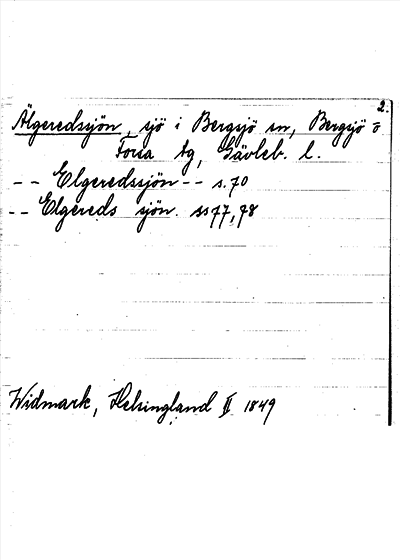 2.
Älgeredsjön, sjö i Bergsjö sn, Bergsjö o
Forsa tg, Gävleb. l.
-- Elgeredssjön -- s. 70
-- Elgereds sjön. ss 77, 78
Widmark, Helsingland II 1849